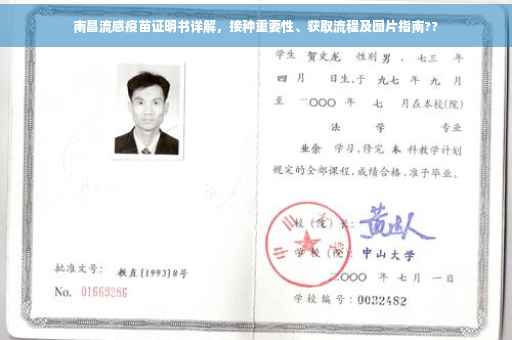 南昌流感疫苗证明书详解，接种重要性、获取流程及图片指南??
学生 贺文龙 性别 男 、七三 年
四 月 日生,于 九七 年 九 月
至 二〇〇〇 年 七 月在本校(院)
法 学 专业
业余 学习,修完 本 科教学计划
规定的全部课程,成绩合格,准予毕业。
校 (院) 长:
学 校 (院) 中山大学
二〇〇〇 年 七 月 一 日
批准文号: 教直[1993]8号
No. 01669286
学校编号: 0032482